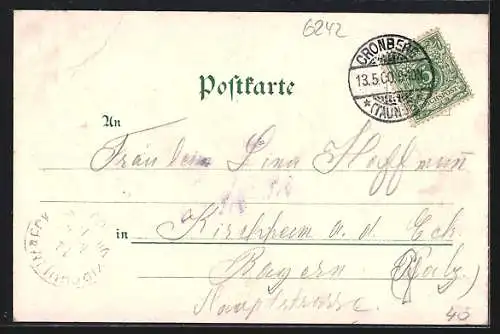 6242
CRONBERG
13.5.00.
* (TAUNUS)
5
Postkarte
An
Fräulein Lina Hoffmann
in Kirchheim a. d. Eck
Bayern (Pfalz)
Hauptstrasse
40